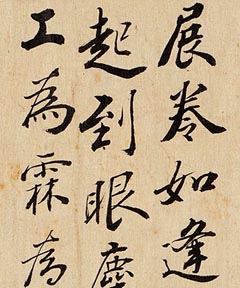 展卷如逢
起到眼塵
工為霖為